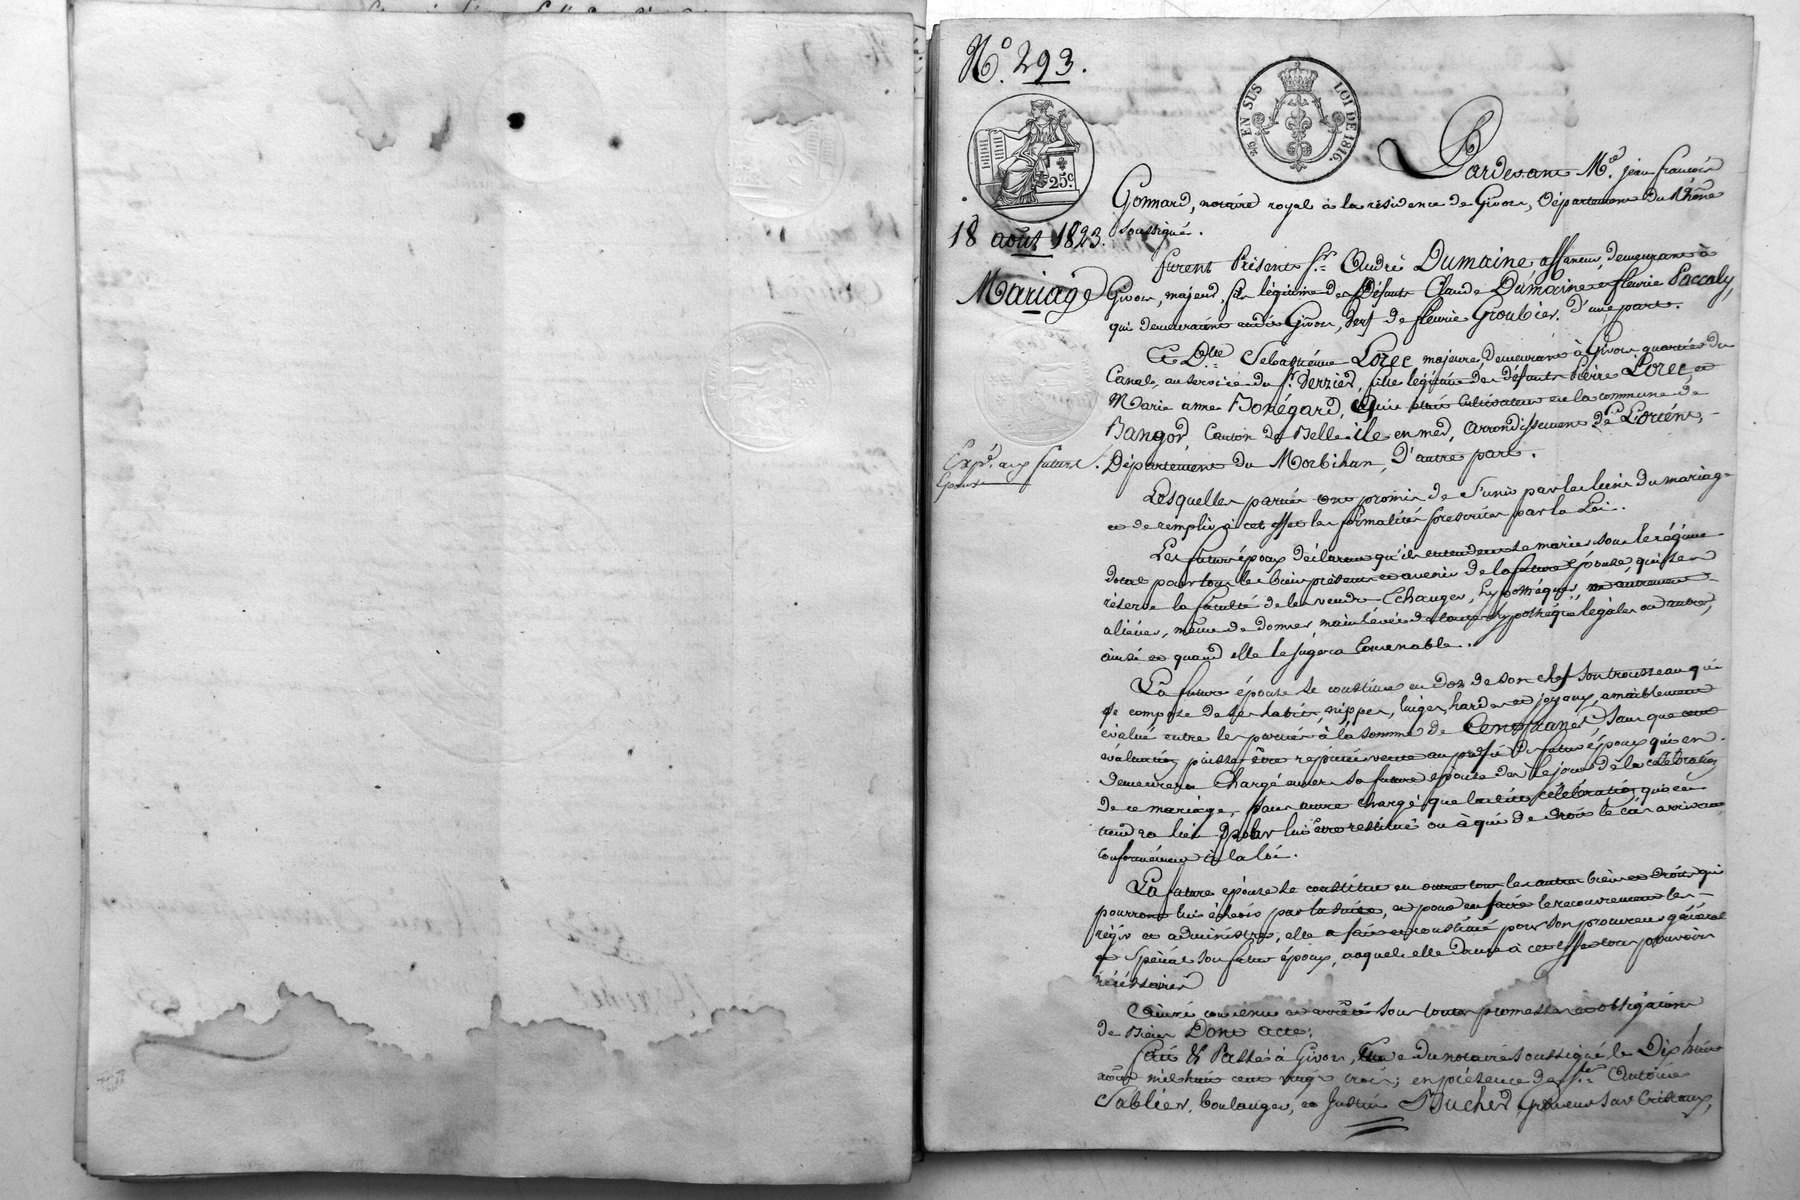 N.º 293.
25 EN SUS
LOI DE 1816.
25.c
18 août 1823.
Mariage
Expé. aux futurs
Pardevant M.e jean françois
Gonnard, notaire royal à la résidence de Givors, Département du Rhône
soussigné.
furent Présents s.r André Dumaine affaneur, demeurant à
Givors, majeur, fils légitime des Défunts Claude Dumaine et fleurie Paccaly,
qui demeuraient audit Givors, veuf de fleurie Gioubier. D'une part.
Et D.lle Sebastienne Lorec majeure, demeurant à Givors quartier du
Canal, au service du s.r Verzier, fille légitime des défunts Pierre Lorec, et
Marie anne Bonégard, qui cultivateurs en la commune de
Bangor Canton de Belle ile en mer, arrondissement de Lorient,
Département du Morbihan, D'autre part.
Lesquelles parties ont promis de s'unir par les liens du mariage
et de remplir à cet effet les formalités prescrites par la Loi.
Les futurs époux déclarent qu'ils entendent se marier sous le régime
dotal pour tous les biens présents et avenir de la future épouse, qui se
réserve la faculté de les vendre Echanger, hypothéquer, ou autrement
aliéner, même de donner main levée de toutes hypothèques légales ou autres,
ainsi et quand elle le jugera Convenable.
La future épouse se constitue en dot de son chef son trousseau qui
se compose de ses habits, nippes, linges, hardes et joyaux, amiablement
évalué entre les parties à la somme de Cent francs, sans que cette
évaluation puisse être réputée vente au profit du futur époux qui en
demeurera Chargé envers sa future épouse dès le jour de la célébration
de ce mariage, sans autre chargé que ladite célébration, qui en
tiendra lieu pour lui être restitué ou à qui de droit le cas arrivant
conformément à la loi.
La future épouse se constitue en outre tous les autres biens et droits qui
pourront lui échoir par la suite, et pour en faire le recouvrement les
régir et administrer, elle a fait et constitué pour son procureur général
et spécial son futur époux, auquel elle donne à cet effet tous pouvoirs
nécessaires
Ainsi convenu et arrêté sous toutes promesses et obligations
de Biens Dont acte;
fait & Passé à Givors, Etude du notaire soussigné, le Dix huit
août mil huit cent vingt trois; en présence de s.rs Antoine
Sablier, boulanger, et Justin Bucher, Graveur sur Cristaux,